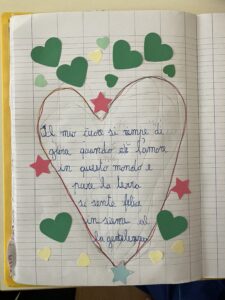 Il mio cuore si riempe di
gioia quando c'è l'amore
in questo mondo e
pure la terra
si sente felice
insieme al
la gentilezza